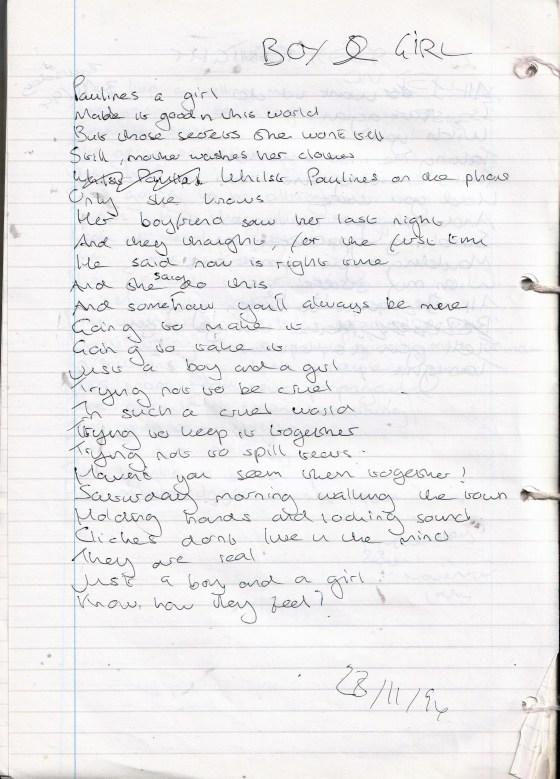 BOY & GIRL
Paulines a girl
Made it good in this world
But those secrets she wont tell
Still, mother washes her clothes
Whilst Paulines on the phone
Only she knows
Her boyfriend saw her last night
And they thought, for the first time
He said now is right time
And she says do this
And somehow you'll always be mine
Going to make it
Going to take it
Just a boy and a girl
Trying not to be cruel
In such a cruel world
Trying to keep it together
Trying not to spill tears.
Haven't you seem them together!
Saturday morning walking the town
Holding hands and looking sound
Cliches dont live in the mind
They are real
Just a boy and a girl
Know how they feel?
28/11/94